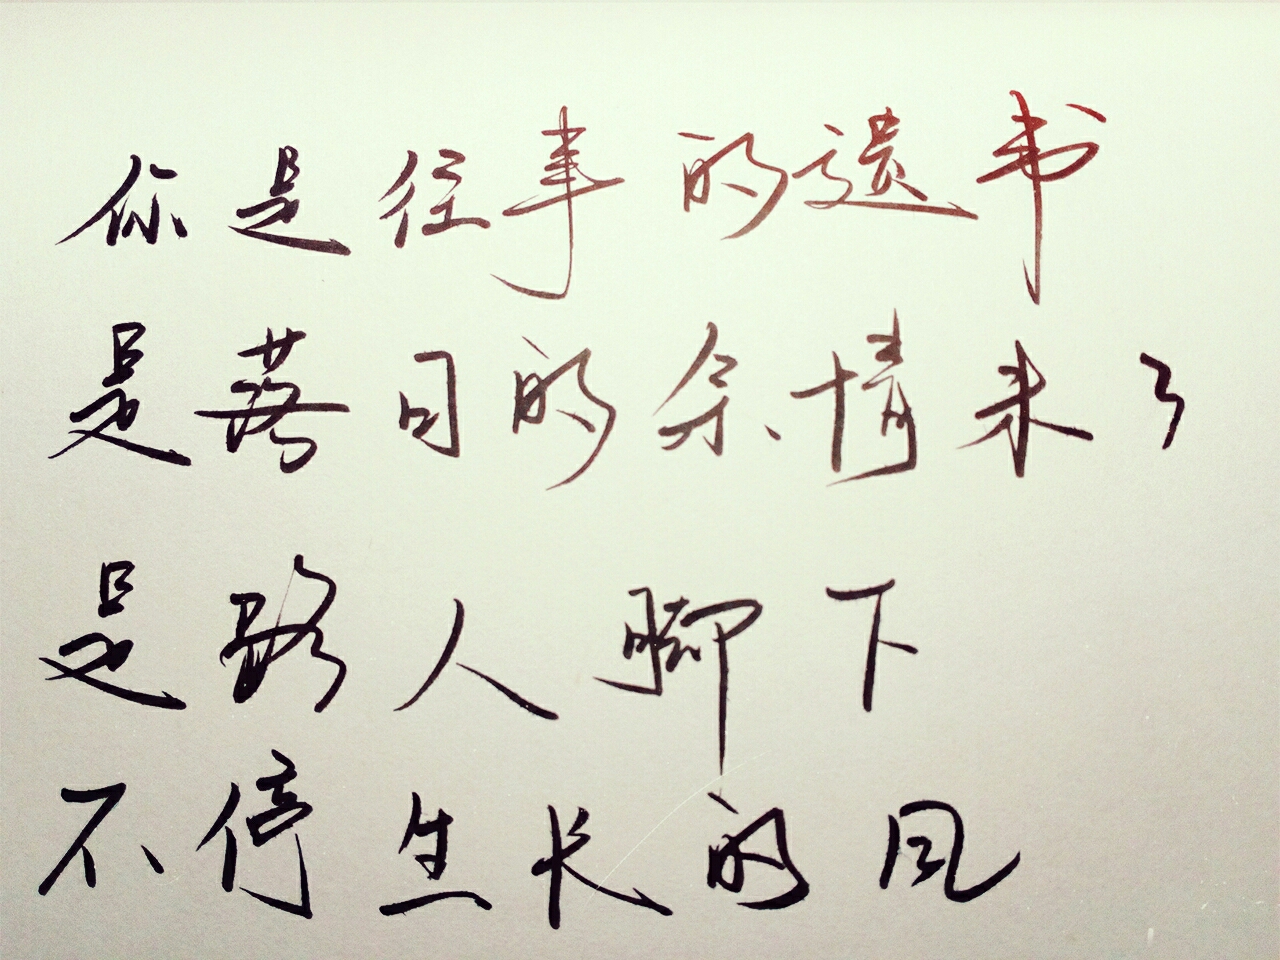 你是往事的遗书
是落日的余情未了
是路人脚下
不停生长的风